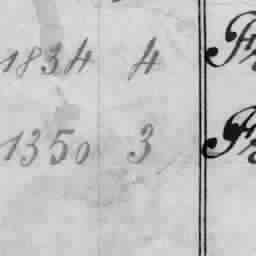 1834 4
1350 3